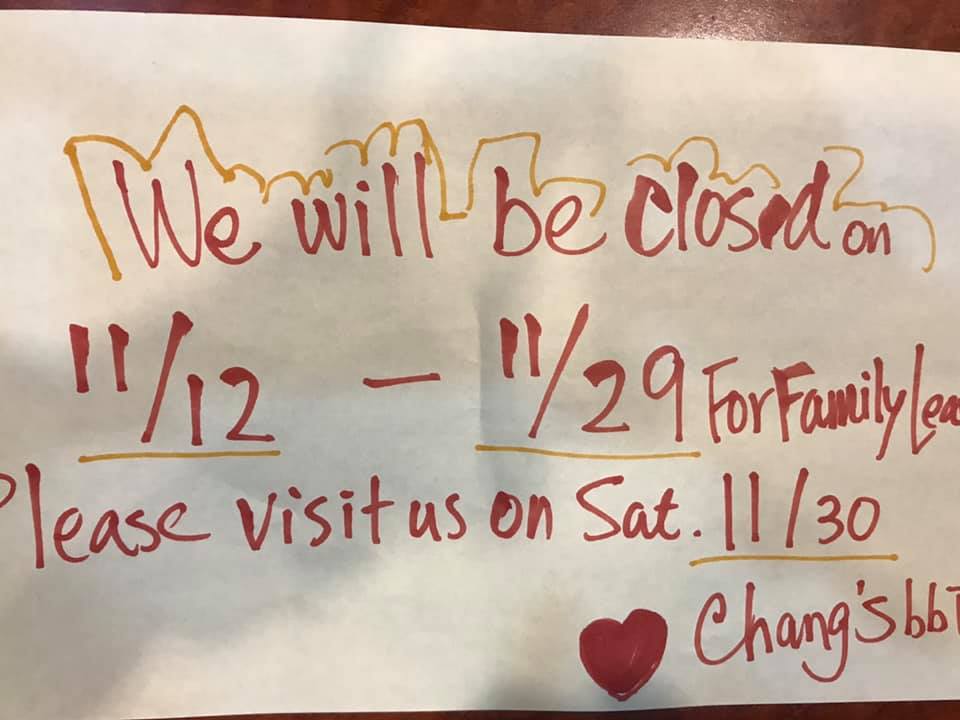 We will be closed on
11/12 — 11/29 For Family Lea
Please visit us on Sat. 11/30
Chang's bb